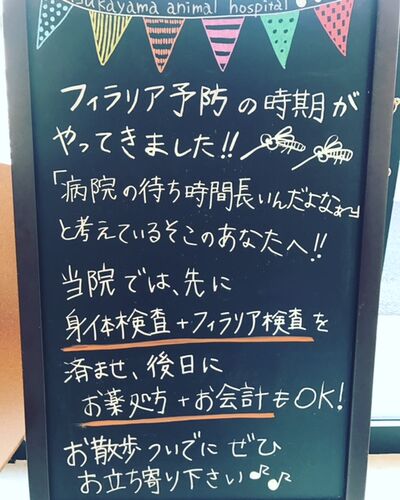 ukayama animal hospital
フィラリア予防の時期が
やってきました!!
「病院の待ち時間長いんだよなぁ〜」
と考えているそこのあなたへ!!
当院では、先に
身体検査+フィラリア検査を
済ませ、後日に
お薬処方+お会計もOK!
お散歩ついでにぜひ
お立ち寄り下さい♪♪